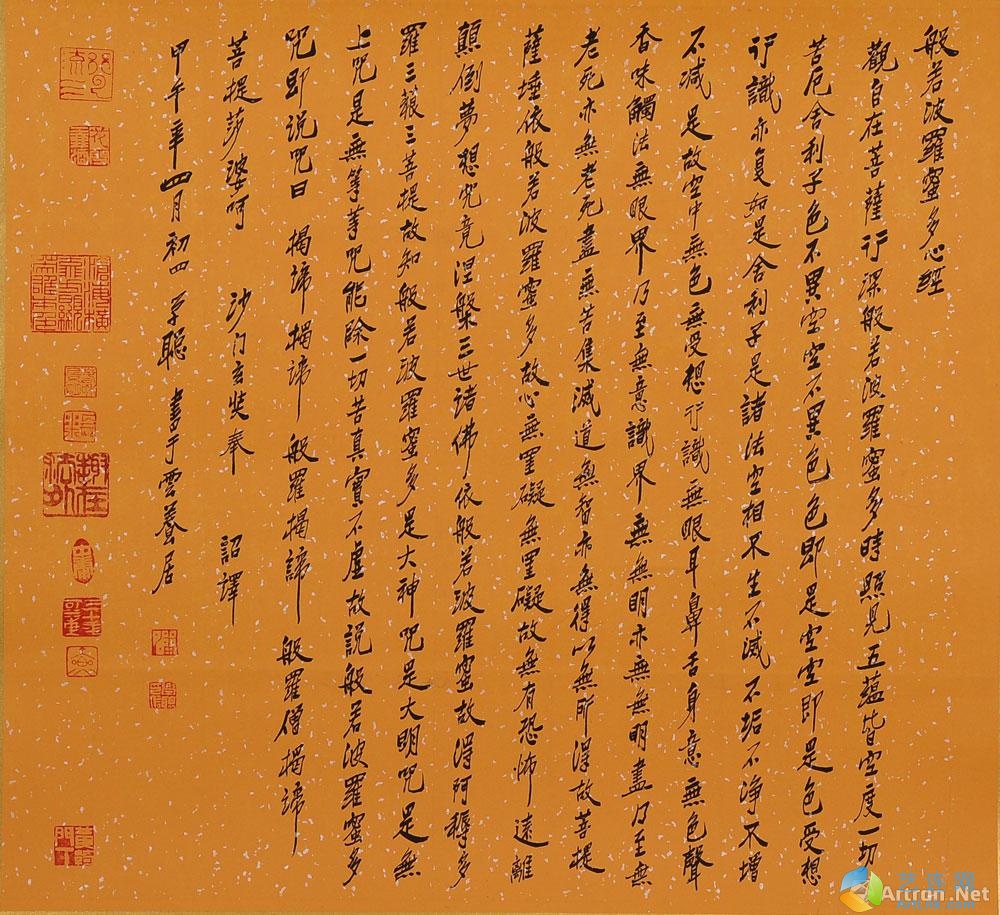 般若波羅蜜多心經
觀自在菩薩行深般若波羅蜜多時照見五蘊皆空度一切
苦厄舍利子色不異空空不異色色即是空空即是色受想
行識亦复如是舍利子是諸法空相不生不滅不垢不净不增
不減是故空中無色無受想行識無眼耳鼻舌身意無色聲
香味觸法無眼界乃至無意識界無無明亦無無明盡乃至無
老死亦無老死盡無苦集滅道無智亦無得以無所得故菩提
薩埵依般若波羅蜜多故心無罣礙無罣礙故無有恐怖遠離
顛倒夢想究竟涅槃三世諸佛依般若波羅蜜故得阿耨多
羅三藐三菩提故知般若波羅蜜多是大神咒是大明咒是無
上咒是無等等咒能除一切苦真實不虛故説般若波羅蜜多
咒即说咒曰 揭諦揭諦 般羅揭諦 般羅僧揭諦
菩提莎婆呵 沙门玄奘奉 詔譯
甲午年四月初四 學聪 書于雲養居
Artron.Net